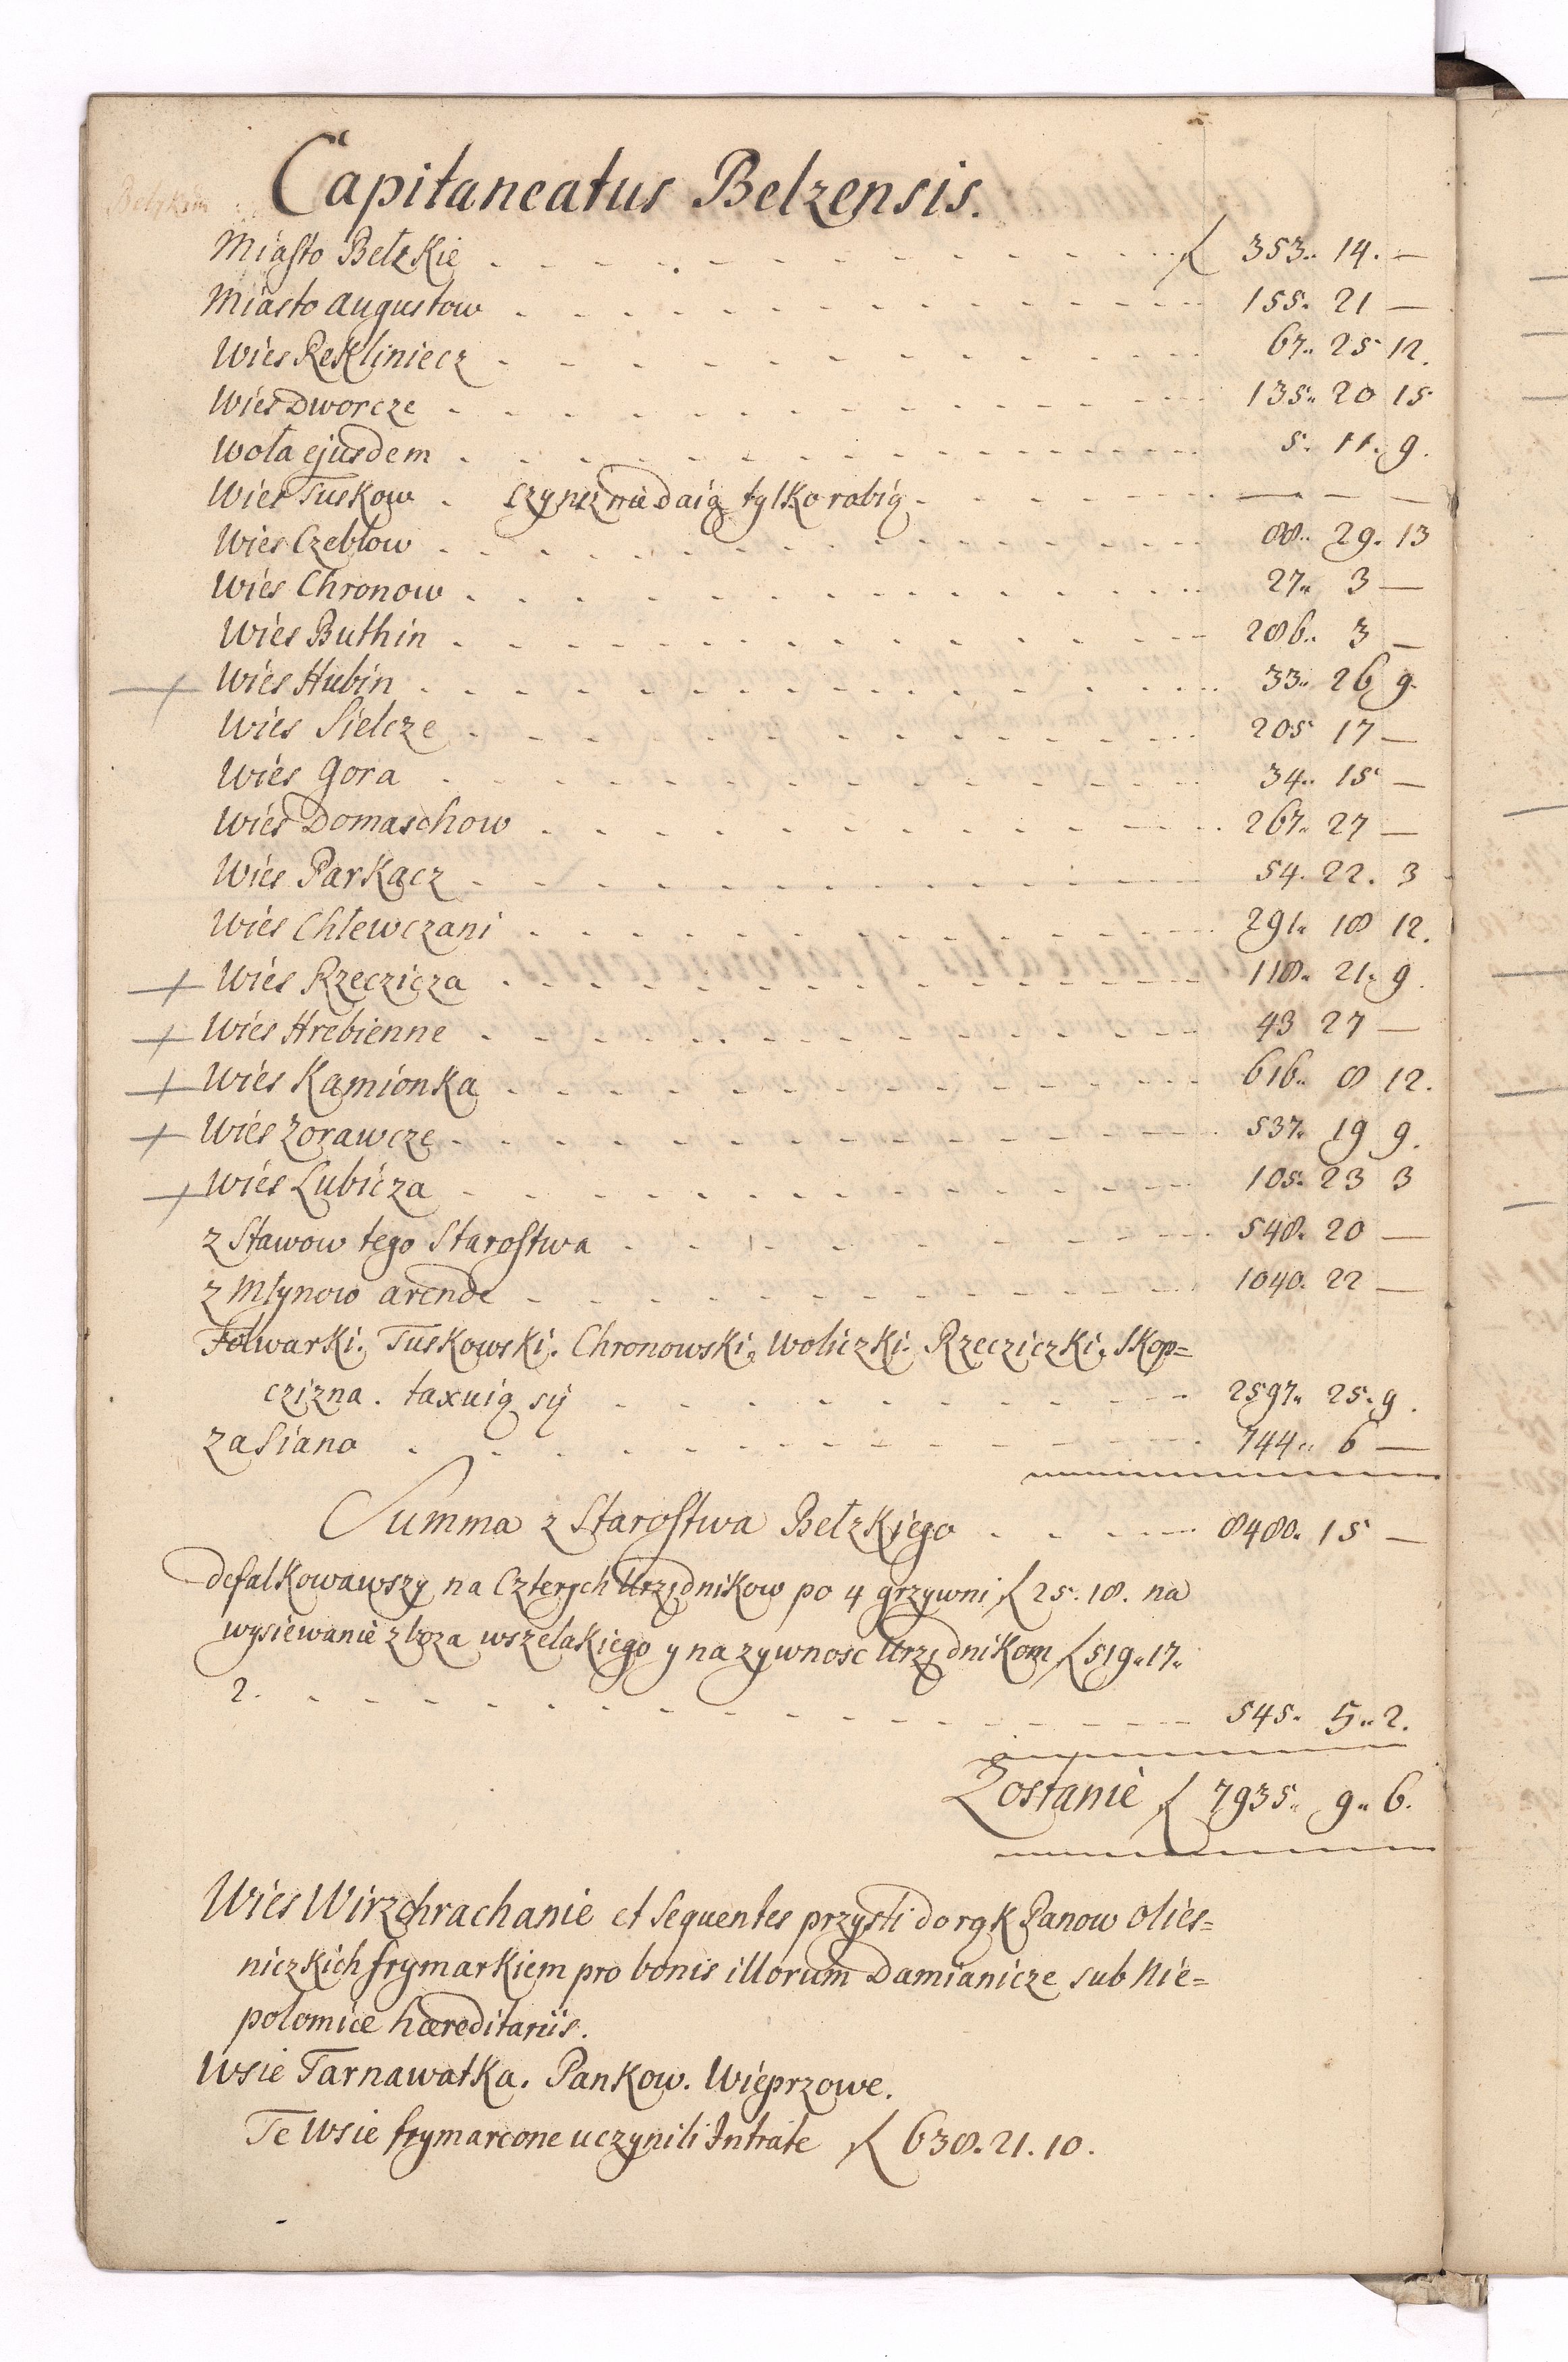 Capitaneatus Belzensis.
Miasto Bełzkie - - - ƒ 353.. 14. —
Miasto Augustow - - - 155. 21 —
Wies Rekliniecz - - - 67.. 25 12.
Wies Dworcze - - - 135.. 20 15
Wola ejusdem - - - 5. 11. 9.
Wies Tuskow - czynsz nie daią tylko robią - - - — — —
Wies Czebłow - - - 88.. 29. 13
Wies Chronow - - - 27.. 3 —
Wies Buthin - - - 286.. 3 —
+ Wies Hubin - - - 33.. 26 9.
Wies Sielcze - - - 205 17 —
Wies Gora - - - 34.. 15 —
Wies Domaschow - - - 267.. 27 —
Wies Parkacz - - - 54. 22. 3
Wies Chlewczani - - - 291.. 18 12.
+ Wies Rzeczicza - - - 118.. 21. 9.
+ Wies Hrebienne - - - 43 27 —
+ Wies Kamionka - - - 616.. 8 12.
+ Wies Zorawcze - - - 537. 19 9.
+ Wies Lubicza - - - 105. 23 3
z Stawow tego Starostwa - - - 548. 20 —
z Młynow arende - - - 1040. 22 —
Folwarki. Tuskowski. Chronowski, Woliczki. Rzecziczki, Skop=
czizna. taxuią sy - - - 2597.. 25. 9.
za Siano - - - 744.. 6 —
Summa z Starostwa Bełzkiego - - - 8480. 15 —
defalkowawszy na Czterych Urzędnikow po 4 grzywni ƒ 25. 18. na
wysiewanie zboza wszelakiego y na zywnosc Urzędnikom ƒ 519.. 17..
2. - - - 545. 5.. 2.
Zostanie ƒ 7935.. 9.. 6.
Wies Wirzchrachanie et sequentes przysli do rąk Panow Olies=
niczkich frymarkiem pro bonis illorum Damianicze sub Nie=
polomice hæreditariis.
Wsie Tarnawatka. Pankow. Wieprzowe.
Te Wsie frymarcone uczynili Intrate ƒ 638. 21. 10.